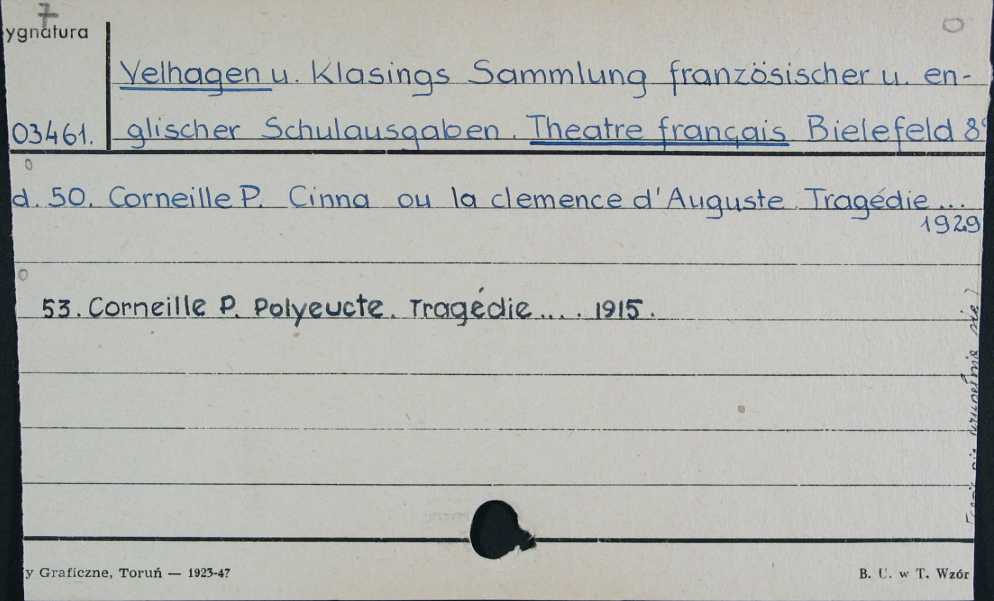 7
ygnatura
Velhagen u. Klasings Sammlung französischer u. en-
03461. glischer Schulausgaben. Theatre français Bielefeld 8°
d. 50. Corneille P. Cinna ou la clemence d'Auguste Tragédie...
1929
53. Corneille P. Polyeucte. Tragédie.... 1915.
y Graficzne, Toruń — 1923-47
B. U. w T. Wzór